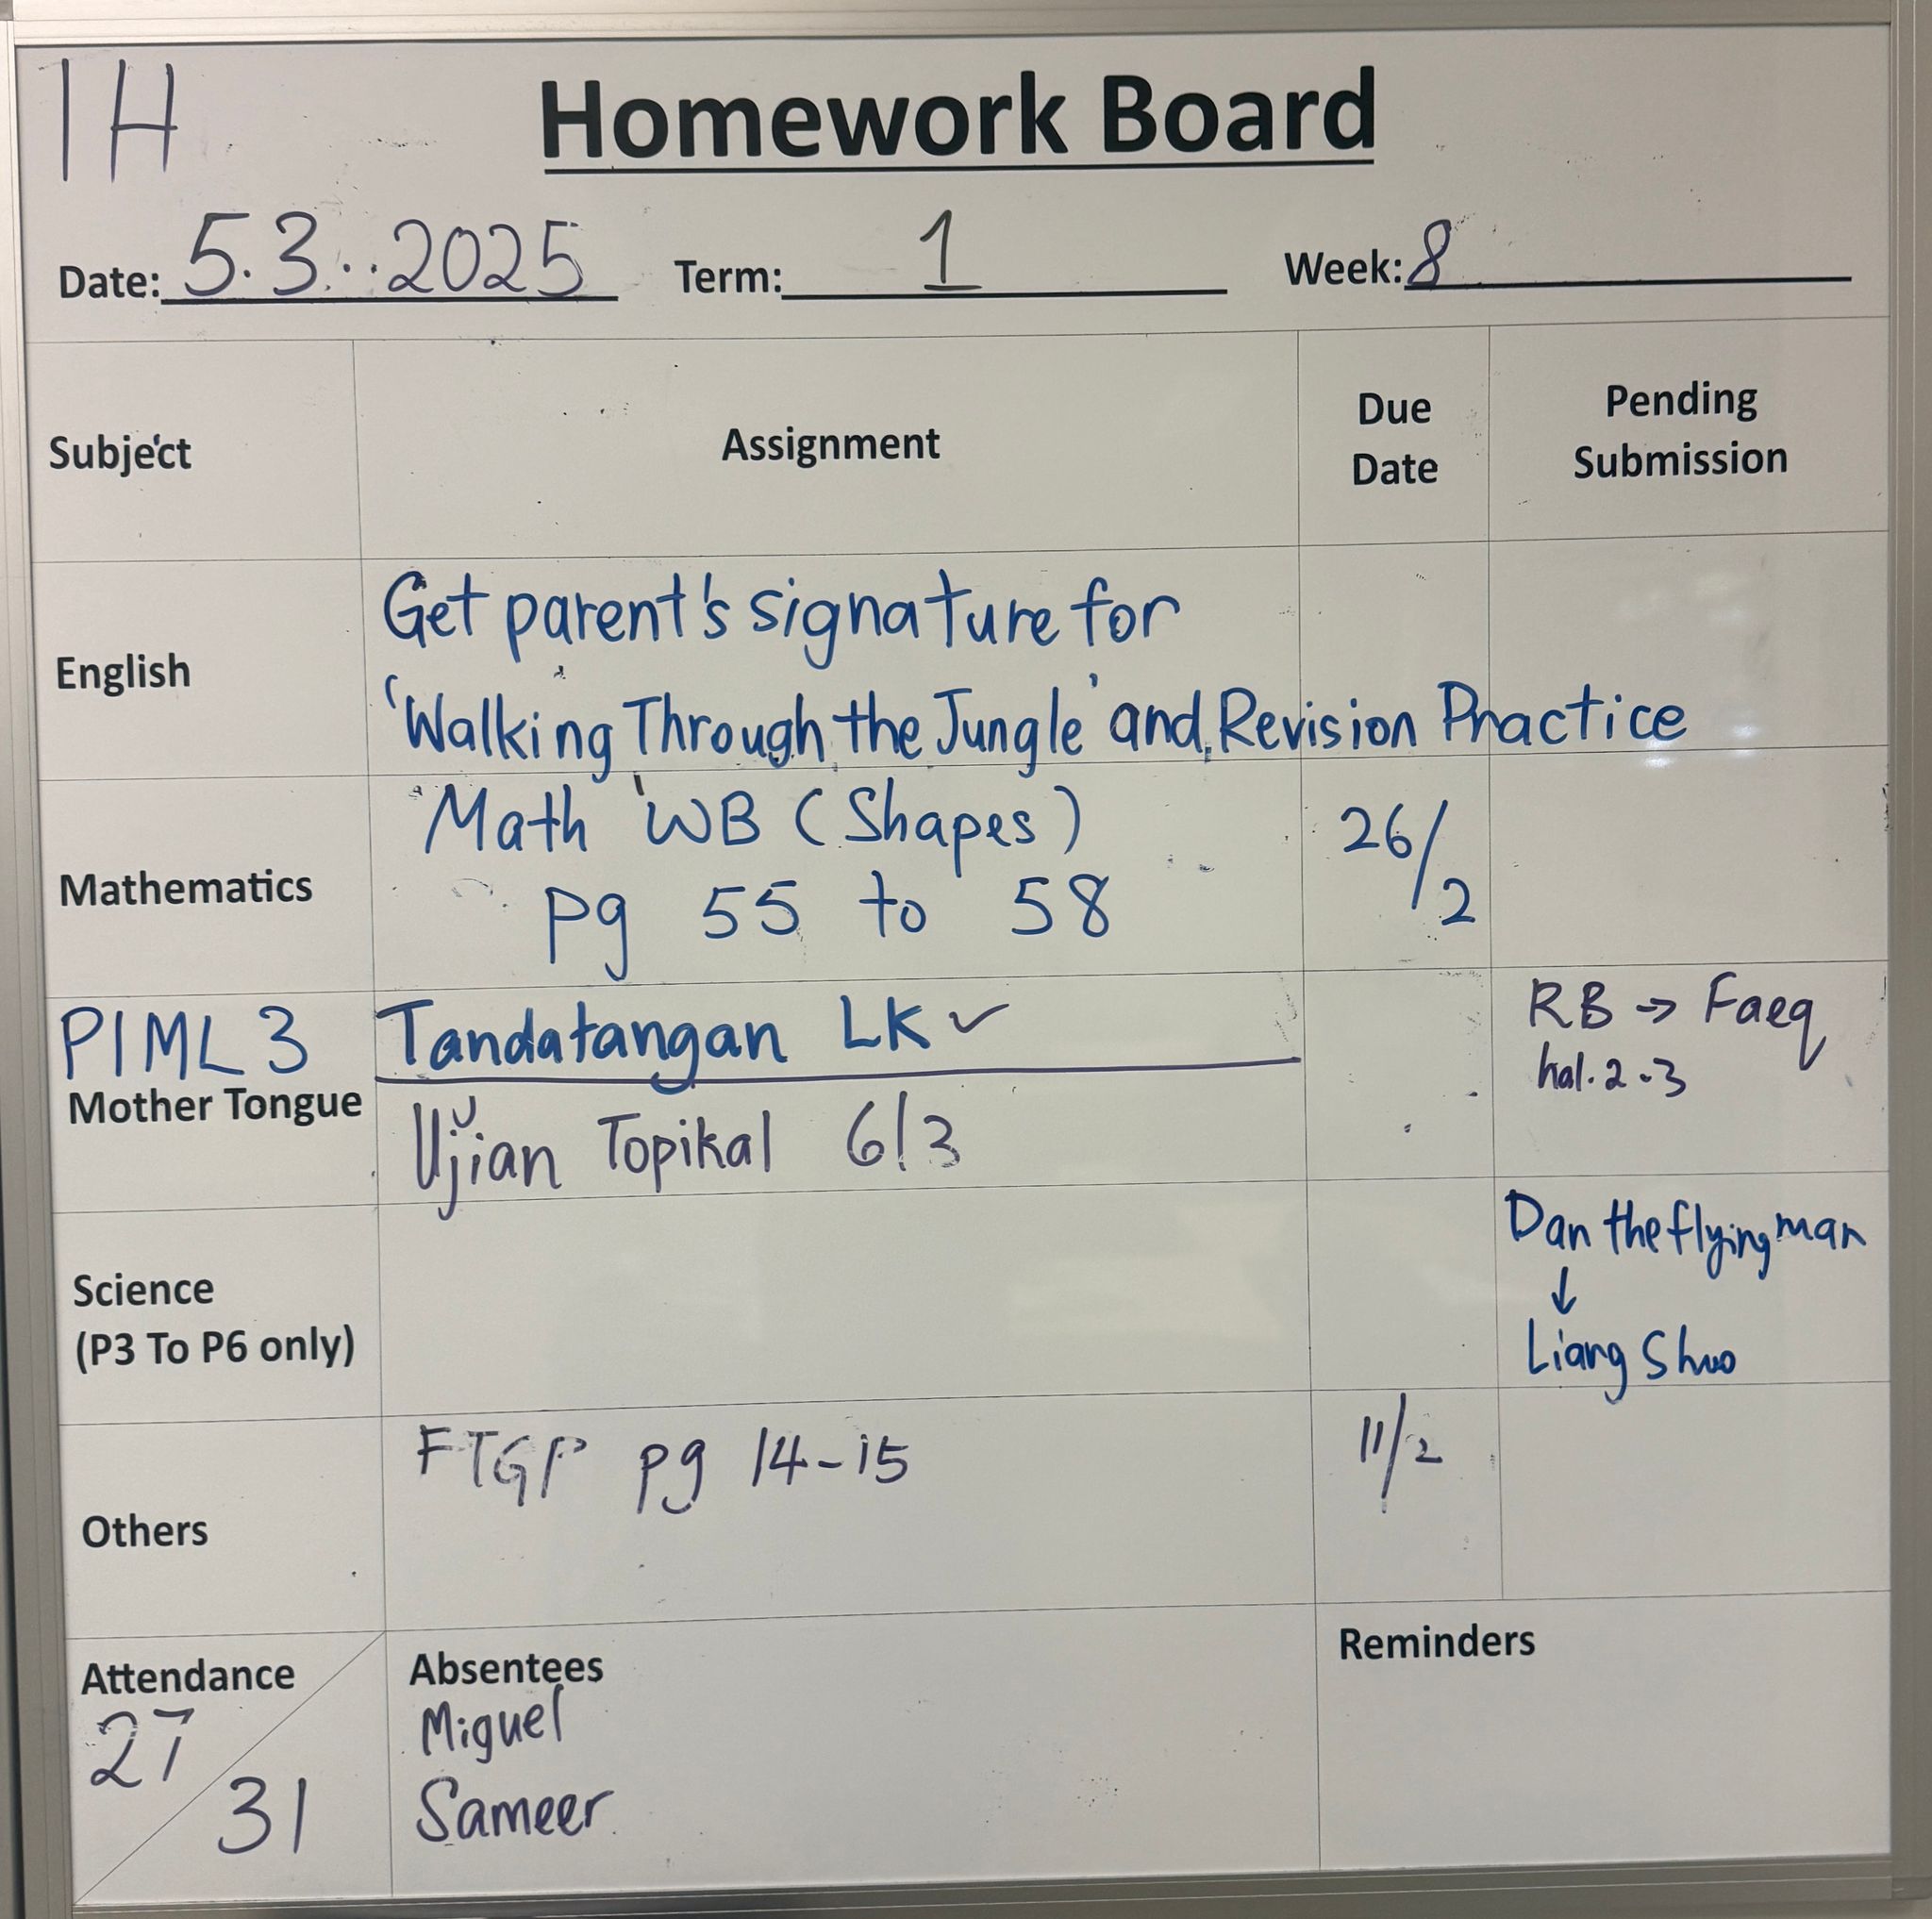 1H
Homework Board
Date: 5.3..2025 Term: 1 Week: 8
Subject Assignment Due Date Pending Submission
English
Get parent's signature for
'Walking Through the Jungle' and Revision Practice
Mathematics
Math WB (Shapes)
pg 55 to 58
26/2
PIML 3
Mother Tongue
Tandatangan LK ✓
Ujian Topikal 6/3
RB → Faeq
hal. 2-3
Science
(P3 To P6 only)
Dan the flying man
↓
Liang Shuo
Others
FTGP pg 14-15
11/2
Attendance
27/31
Absentees
Miguel
Sameer
Reminders